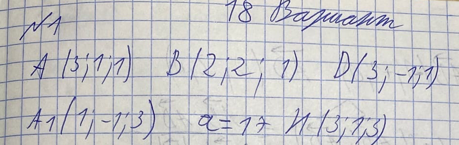 N1 18 Вариант
A (3;1;1) B (2;2; 1) D(3;-1;1)
A1(1;-1;3) a=17 H(3;1;3)